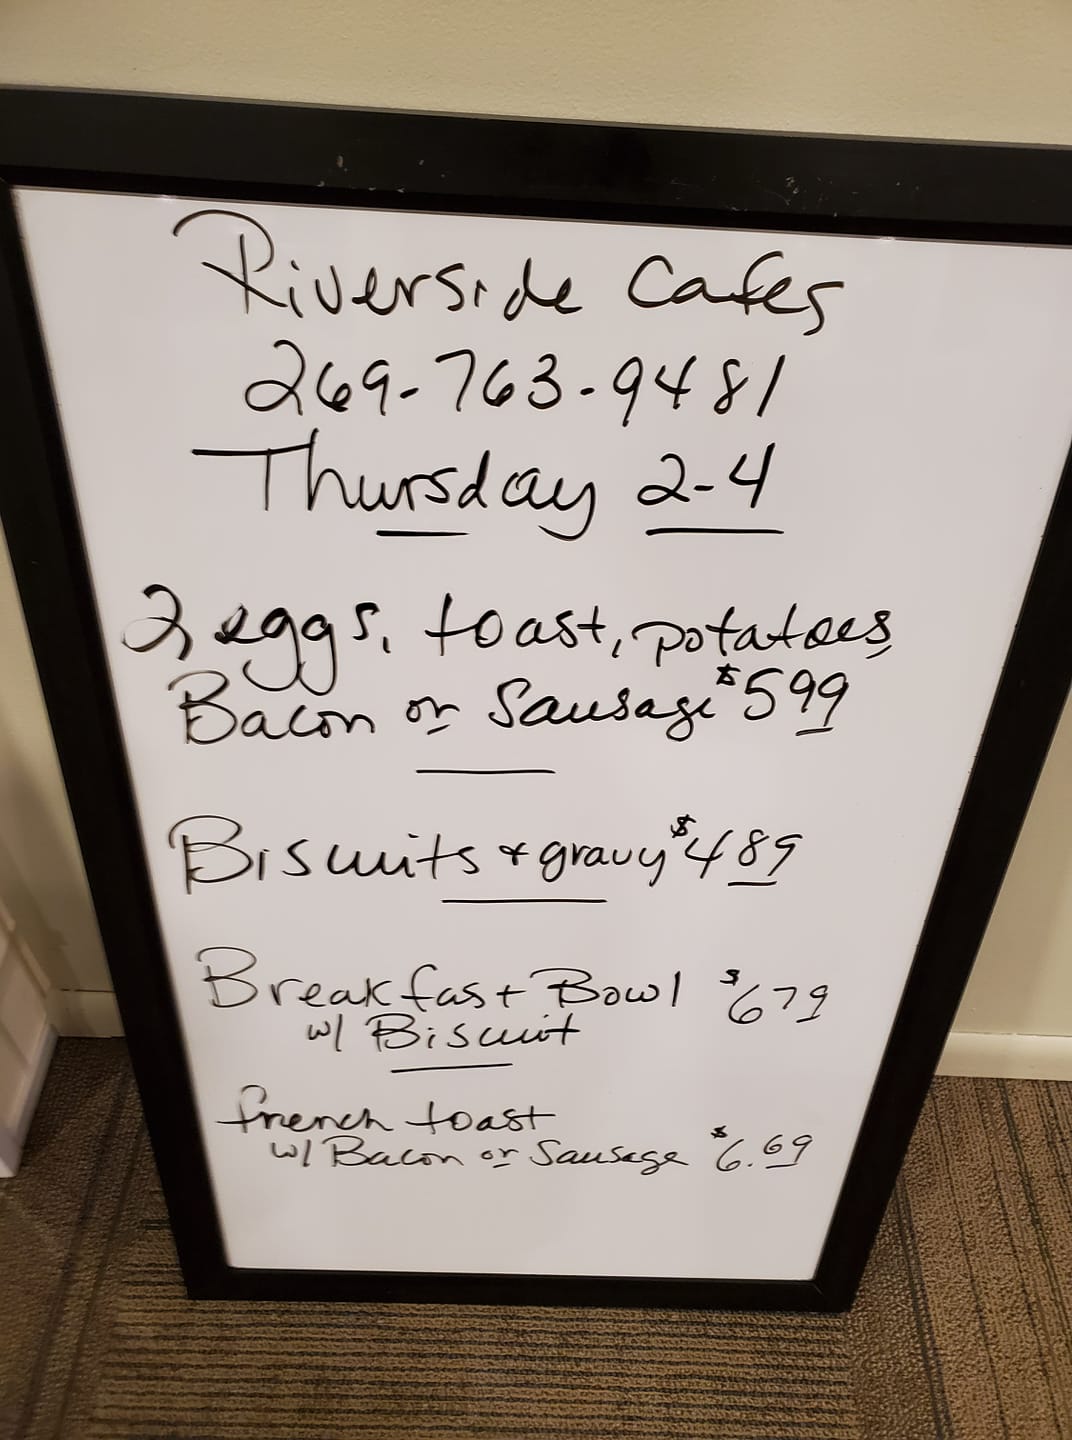 Riverside Cafes
269-763-9481
Thursday 2-4
2 eggs, toast, potatoes,
Bacon or Sausage $5 99
Biscuits & gravy $4 89
Breakfast Bowl $6 79
w/ Biscuit
french toast
w/ Bacon or Sausage $6.69